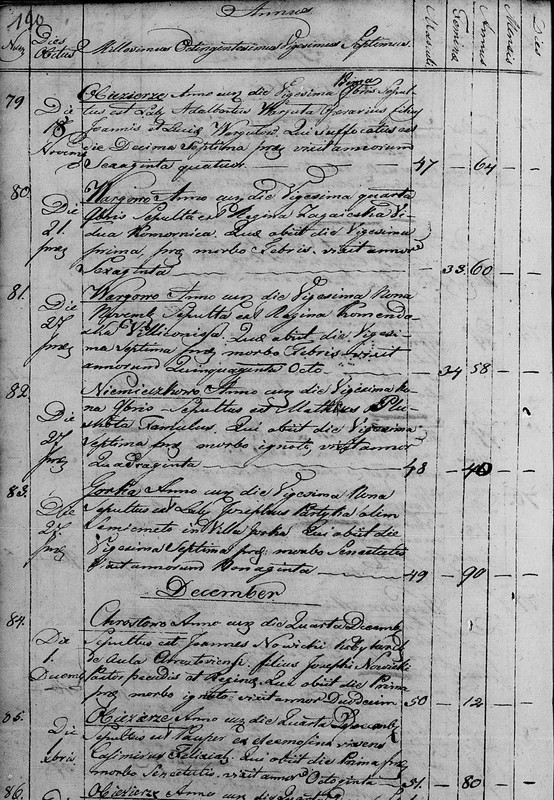 190
Annus
Num
Dies Obitus
Millesimus Octingentesimus Vigesimus Septimus.
Masculi
Femina
Annus
Mensis
Dies
79
Die
18
Novemb
Anno cur: die Vigesima Prima
9bris Sepultus est Lab: Adalbertus
filius
Joannis et Lucia Qui suffocatus est
die Decima Septima prae: vixit annorum
Sexaginta quatuor.
47 — 64 — —
80.
Die
21.
prae
Wargowo Anno cur: die Vigesima quarta
9bris Sepulta est Regina Vi-
dua Komornica. Quae obiit die Vigesima
prima prae: morbo Febris. vixit annor
Sexaginta
— 33 60 — —
81.
Die
27
prae
Wargowo Anno cur: die Vigesima Nona
Novemb: Sepulta est Regina
Quae obiit die Vigesi-
ma Septima prae: morbo Febris vixit
annorum Quinquaginta Octo
— 34 58 — —
82.
Die
27
prae
Niemieczkowo Anno cur: die Vigesima No-
na 9bris Sepultus est Matheus Plu-
Famulus. Qui obiit die Vigesima
Septima prae: morbo ignoto vixit annor
Quadraginta
48 — 40 — —
83.
Die
27.
prae
Gorka Anno cur: die Vigesima Nona
Sepultus est Lab: Josephus olim
in Villa Gorka Qui obiit die
Vigesima Septima prae: morbo Senectutis
Vixit annorum Nonaginta
49 — 90 — —
December
84.
Die
1.
Decemb
Chrostowo Anno cur: die Quarta Decemb
Sepultus est Joannes Nowicki
de Aula filius Josephi Nowicki
Pastor pecudis et Regina Qui obiit die Prima
prae: morbo ignoto vixit annor Duodecim
50 — 12 — —
85.
Die
1
Xbris.
Anno cur: die Quarta Decemb
Sepultus est Pauper ex elemosina vivens
Casimirus Qui obiit die Prima prae
morbo Senectutis, vixit annor Octoginta
51. — 80 — —
86.
Anno cur: die Quarta